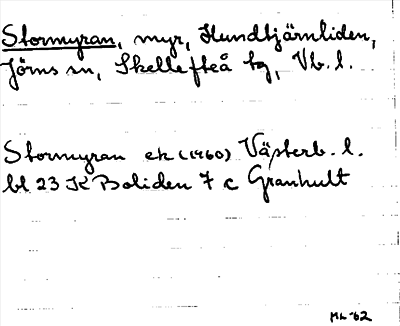 Stormyran, myr, Hundtjärnliden,
Jörns sn, Skellefteå tg, Vb. l.
Stormyran ek (1960) Västerb. l.
bl 23 K Boliden 7 c Granhult
ML-62